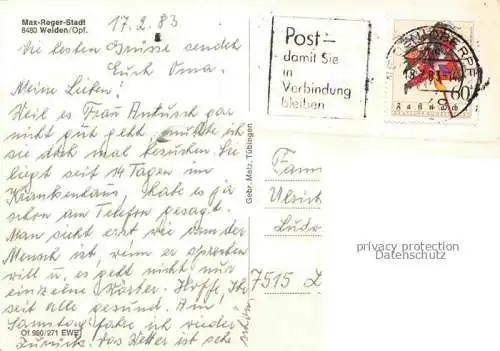 Max-Reger-Stadt
8480 Weiden/Opf.
17.2.83
Die besten Grüsse sendet
Euch Oma.
Meine Lieben!
Weil es Frau gar
nicht gut geht, mußte ich
sie doch mal besuchen. Sie
liegt seit 14 Tagen im
Krankenhaus, habe es ja
schon am Telefon gesagt.
Man sieht erst wie arm der
Mensch ist, wenn er sprechen
will u. es geht nicht nur
einzelne Wörter. Hoffe, Ihr
seit alle gesund. Am
Samstag fahre ich wieder
zurück. Das Wetter ist sehr
schön.
Of 980/271 EWE
Gebr. Metz, Tübingen
Post -
damit Sie
in
Verbindung
bleiben
60
Fam
Ulrich
Ludw
7515 L
privacy protection
watermark